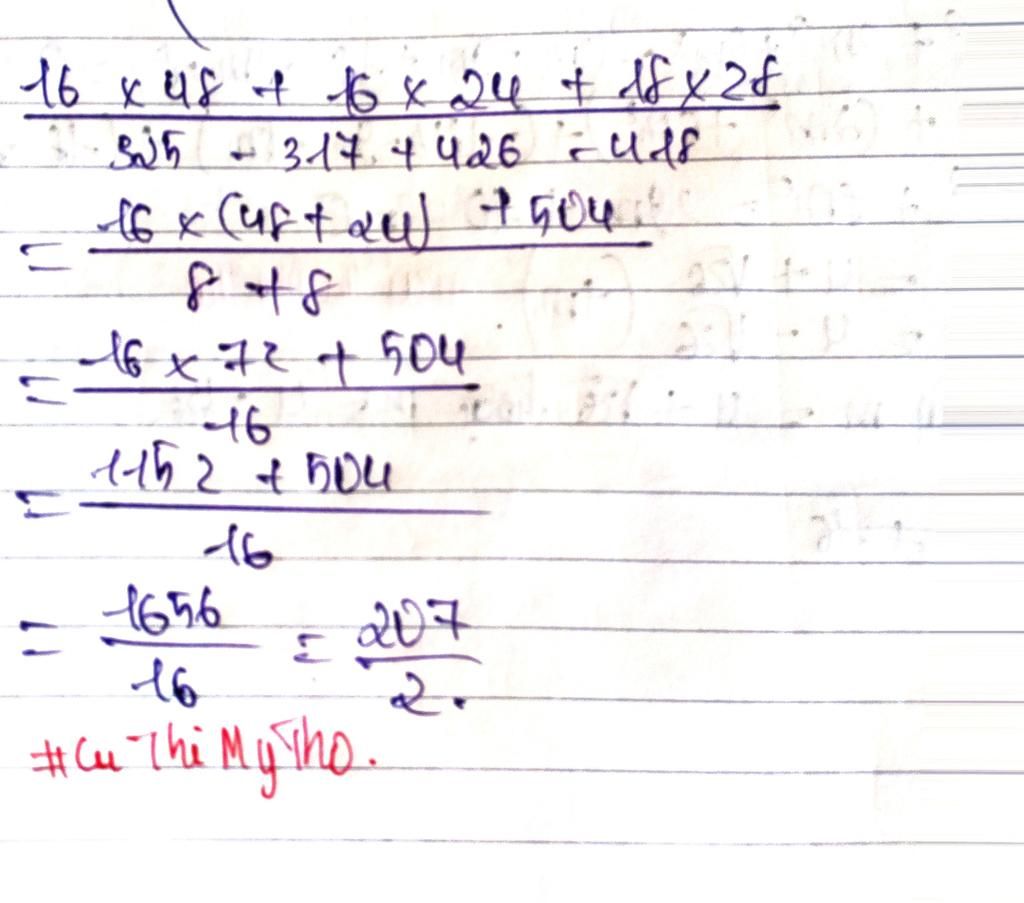 16 × 48 + 16 × 24 + 18 × 28
325 - 317 + 426 - 418
16 × (48 + 24) + 504
=
8 + 8
16 × 72 + 504
=
16
1152 + 504
=
16
= 1656 = 207
16 2.
#Cu Thi My Tho.